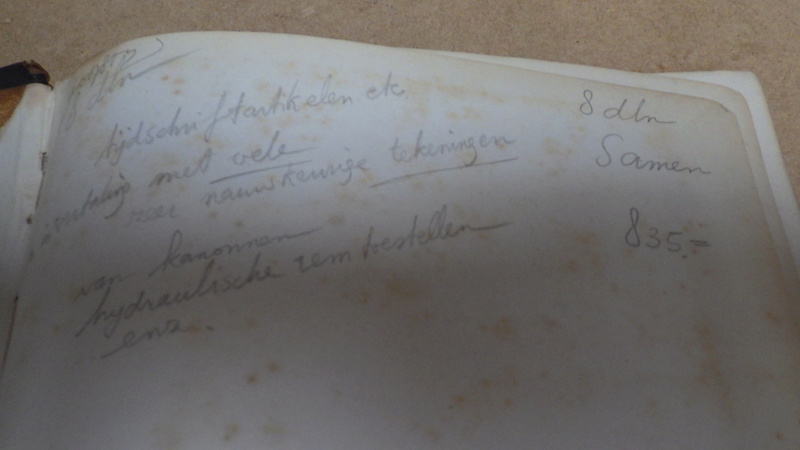 8 dln
tijdschriftartikelen etc.
met vele
zeer nauwkeurige tekeningen
van kanonnen
hydraulische remtoestellen
enz.
8 dln
Samen
835.=